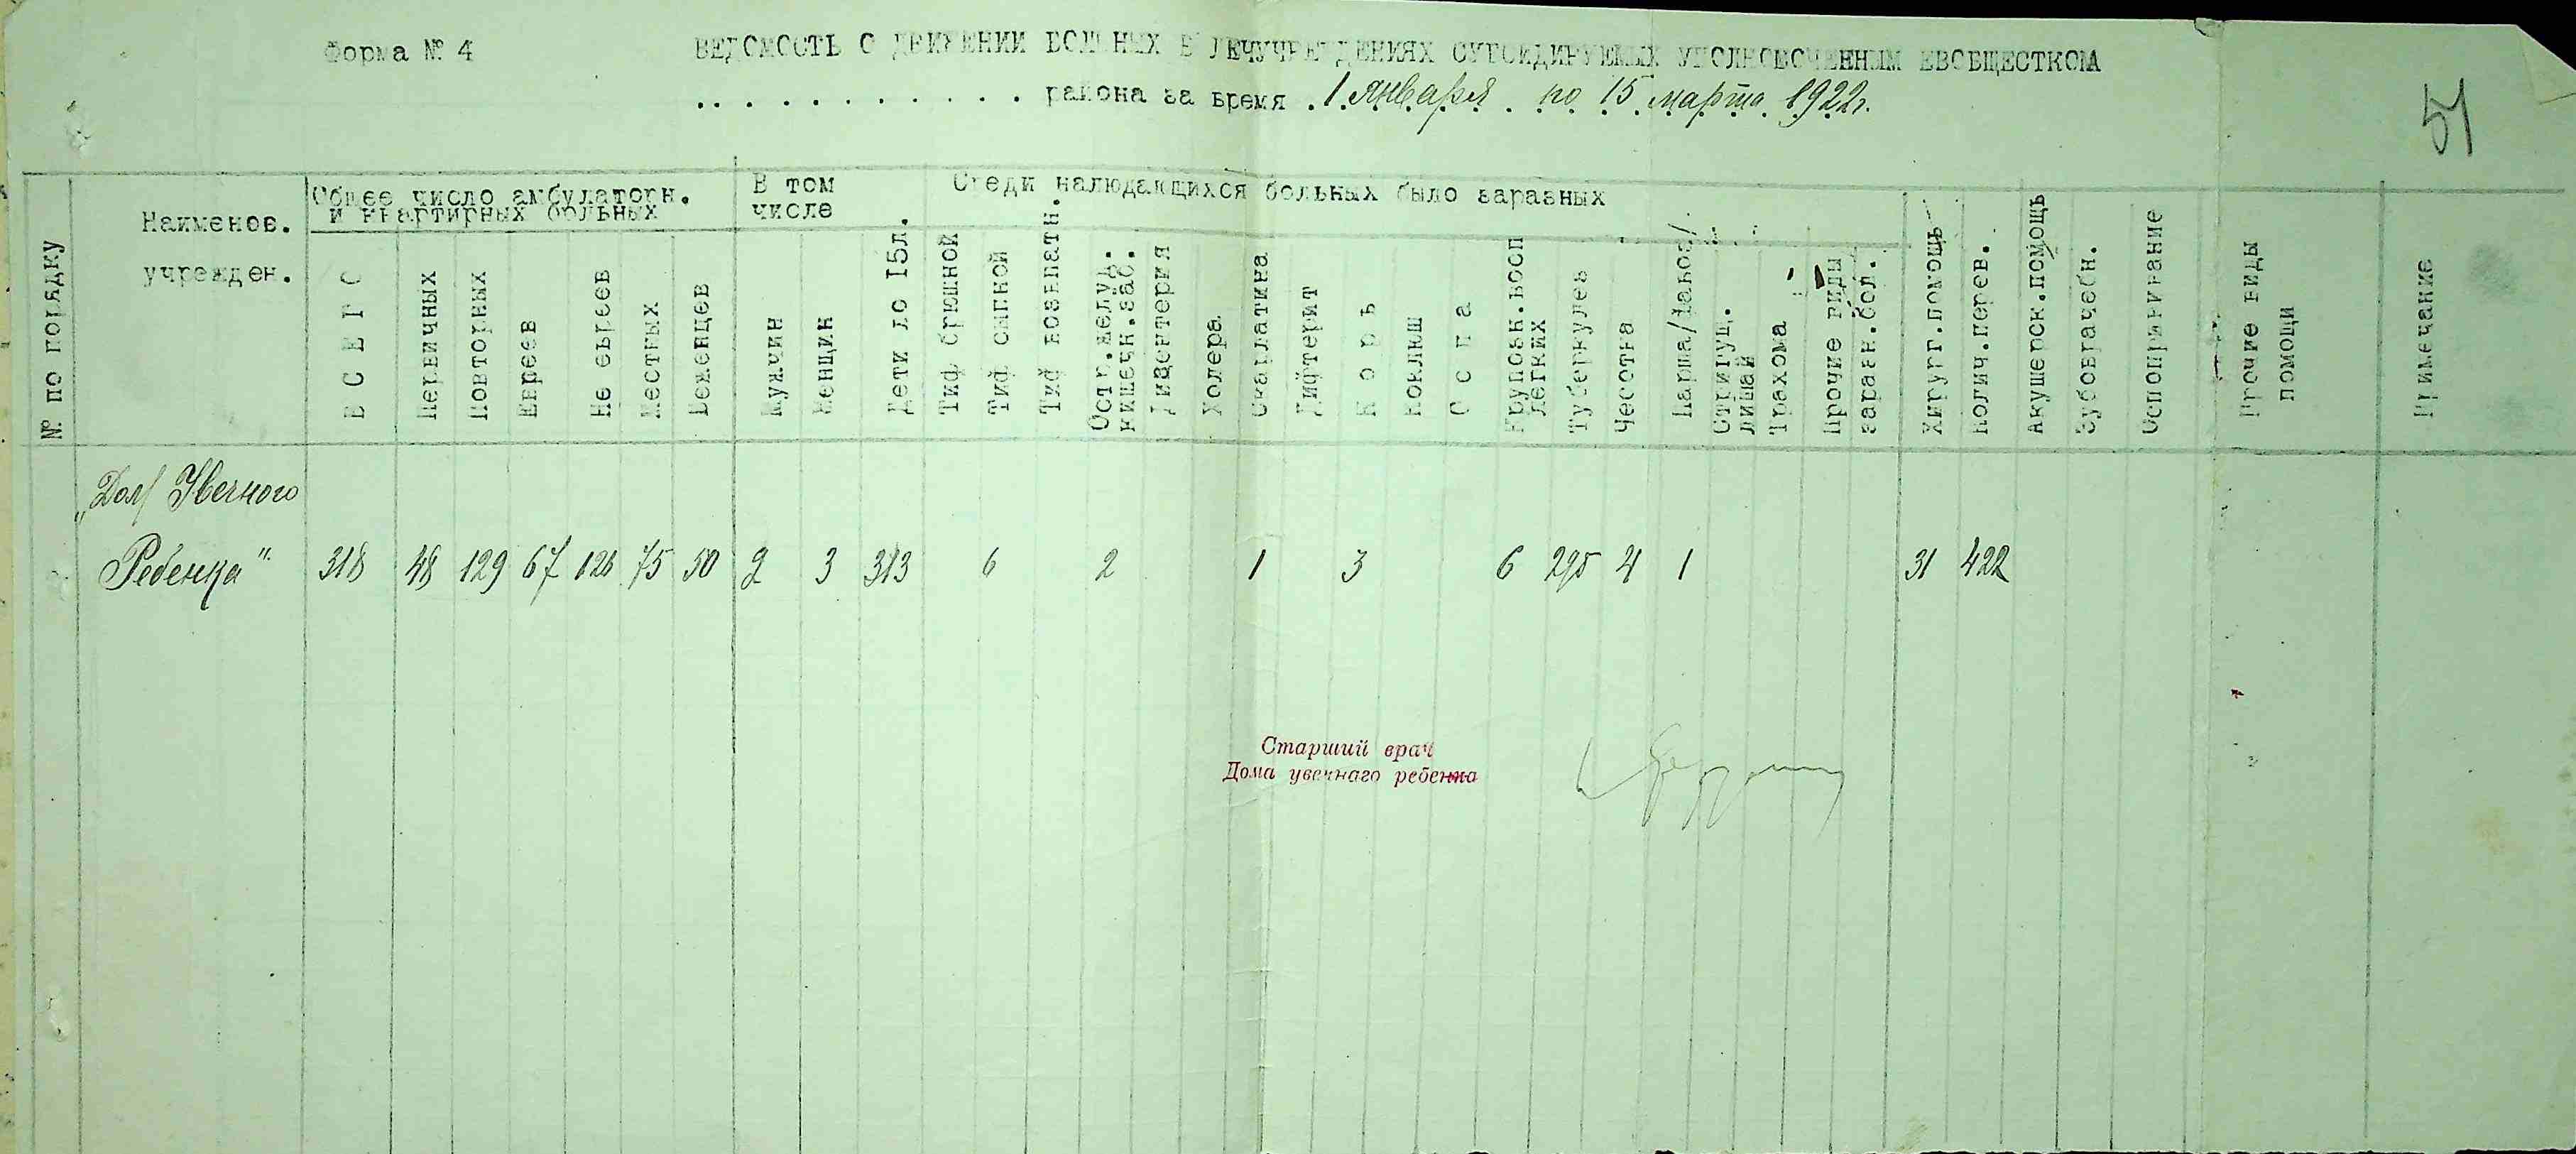 Форма № 4
ВЕДОМОСТЬ О ДВИЖЕНИИ БОЛЬНЫХ В ЛЕЧУЧРЕЖДЕНИЯХ СУБСИДИРУЕМЫХ УПОЛНОМОЧЕННЫМ ЕВОБЩЕСТКОМА
района за время 1 января по 15 марта 1922г.
51
№ по порядку
Наименов.
учрежден.
Общее число амбулаторн.
и квартирных больных
ВСЕГО
Первичных
Повторных
Евреев
Не евреев
Местных
Беженцев
В том
числе
Мужчин
Женщин
Дети до 15л.
Среди налюдающихся больных было заразных
Тиф брюшной
Тиф сыпной
Тиф возвратн.
Остр.желуд.
кишечн.заб.
Дизентерия
Холера
Скарлатина
Дифтерит
Корь
Коклюш
Оспа
Крупозн.восп
легких
Туберкулез
Чесотка
Парша/фавоз/
Стригущ.
лишай
Трахома
Прочие виды
заразн.бол.
Хирург.помощь
Колич.перев.
Акушерск.помощь
Зубоврачебн.
Оспопрививание
Прочие виды
помощи
Примечание
„Дом Увечного
Ребенка" 318 48 129 67 126 75 50 2 3 313 6 2 1 3 6 295 4 1 31 422
Старший врач
Дома увечнаго ребенка